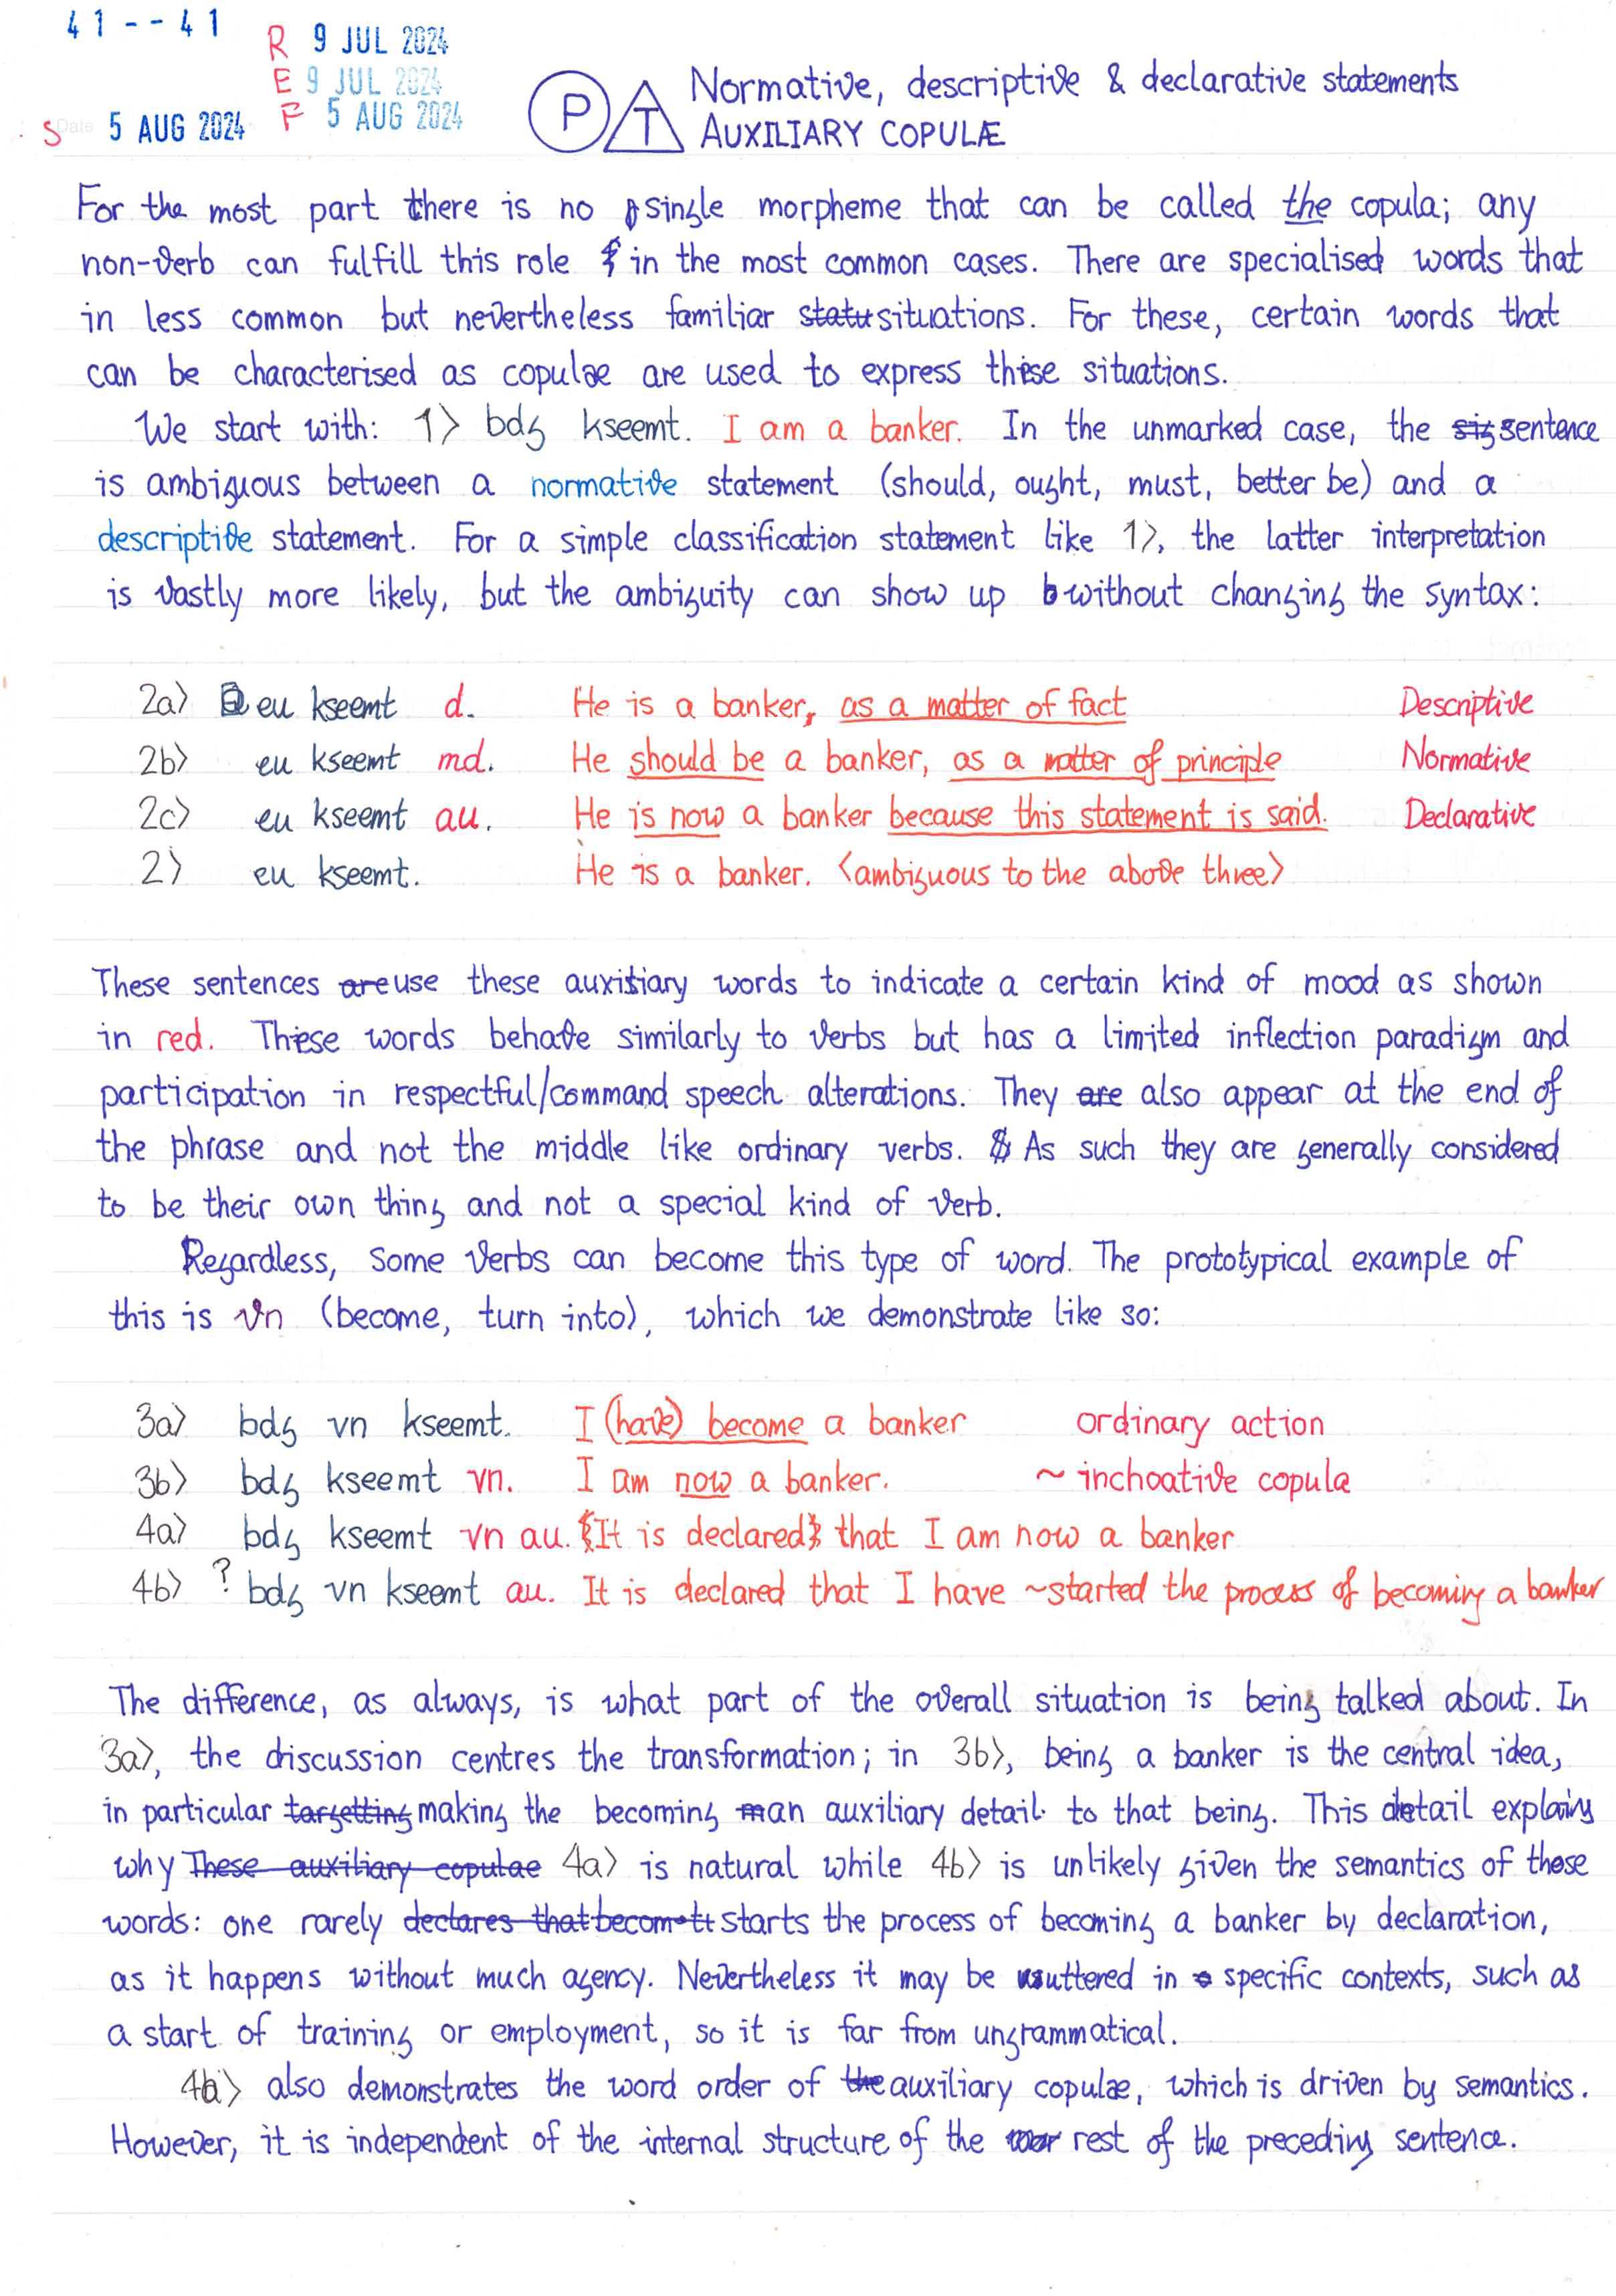 41--41
R 9 JUL 2024
E 9 JUL 2024
F 5 AUG 2024
S Date 5 AUG 2024
P T Normative, descriptive & declarative statements
AUXILIARY COPULÆ
For the most part there is no single morpheme that can be called the copula; any
non-verb can fulfill this role in the most common cases. There are specialised words that
in less common but nevertheless familiar statu situations. For these, certain words that
can be characterised as copulæ are used to express these situations.
We start with: 1> bdg kseemt. I am a banker. In the unmarked case, the sig sentence
is ambiguous between a normative statement (should, ought, must, better be) and a
descriptive statement. For a simple classification statement like 1>, the latter interpretation
is vastly more likely, but the ambiguity can show up without changing the syntax:
2a> eu kseemt d. He is a banker, as a matter of fact Descriptive
2b> eu kseemt md. He should be a banker, as a matter of principle Normative
2c> eu kseemt au. He is now a banker because this statement is said. Declarative
2> eu kseemt. He is a banker. <ambiguous to the above three>
These sentences are use these auxiliary words to indicate a certain kind of mood as shown
in red. These words behave similarly to verbs but has a limited inflection paradigm and
participation in respectful/command speech alterations. They are also appear at the end of
the phrase and not the middle like ordinary verbs. As such they are generally considered
to be their own thing and not a special kind of verb.
Regardless, some verbs can become this type of word. The prototypical example of
this is vn (become, turn into), which we demonstrate like so:
3a> bdg vn kseemt. I (have) become a banker ordinary action
3b> bdg kseemt vn. I am now a banker. ~ inchoative copula
4a> bdg kseemt vn au. It is declared that I am now a banker
4b> ? bdg vn kseemt au. It is declared that I have ~started the process of becoming a banker
The difference, as always, is what part of the overall situation is being talked about. In
3a>, the discussion centres the transformation; in 3b>, being a banker is the central idea,
in particular targetting making the becoming an auxiliary detail to that being. This detail explains
why These auxiliary copulae 4a> is natural while 4b> is unlikely given the semantics of those
words: one rarely declares that starts the process of becoming a banker by declaration,
as it happens without much agency. Nevertheless it may be uttered in specific contexts, such as
a start of training or employment, so it is far from ungrammatical.
4a> also demonstrates the word order of the auxiliary copulæ, which is driven by semantics.
However, it is independent of the internal structure of the rest of the preceding sentence.